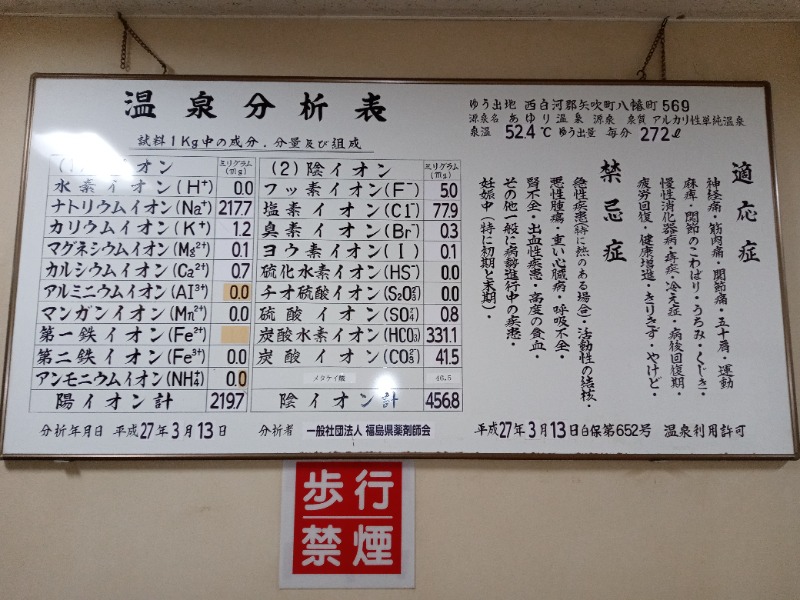 温泉分析表
試料1Kg中の成分.分量及び組成
(1)陽イオン ミリグラム(mg)
水素イオン(H⁺) 0.0
ナトリウムイオン(Na⁺) 217.7
カリウムイオン(K⁺) 1.2
マグネシウムイオン(Mg²⁺) 0.1
カルシウムイオン(Ca²⁺) 0.7
アルミニウムイオン(Al³⁺) 0.0
マンガンイオン(Mn²⁺) 0.0
第一鉄イオン(Fe²⁺)
第二鉄イオン(Fe³⁺) 0.0
アンモニウムイオン(NH₄⁺) 0.0
陽イオン計 219.7
(2)陰イオン ミリグラム(mg)
フッ素イオン(F⁻) 5.0
塩素イオン(Cl⁻) 77.9
臭素イオン(Br⁻) 0.3
ヨウ素イオン(I) 0.1
硫化水素イオン(HS⁻) 0.0
チオ硫酸イオン(S₂O₃²⁻) 0.0
硫酸イオン(SO₄²⁻) 0.8
炭酸水素イオン(HCO₃) 331.1
炭酸イオン(CO₃²⁻) 41.5
メタケイ酸 46.5
陰イオン計 456.8
ゆう出地 西白河郡矢吹町八幡町569
源泉名 あゆり温泉 源泉 泉質 アルカリ性単純温泉
泉温 52.4℃ ゆう出量 毎分 272ℓ
適応症
神経痛・筋肉痛・関節痛・五十肩・運動
麻痺・関節のこわばり・うちみ・くじき・
慢性消化器病・痔疾・冷え症・病後回復期・
疲労回復・健康増進・きりきず・やけど・
禁忌症
急性疾患(特に熱のある場合)・活動性の結核・
悪性腫瘍・重い心臓病・呼吸不全・
腎不全・出血性疾患・高度の貧血・
その他一般に病勢進行中の疾患・
妊娠中(特に初期と末期)・
分析年月日 平成27年3月13日 分析者 一般社団法人 福島県薬剤師会
平成27年3月13日白保第652号 温泉利用許可
歩行
禁煙